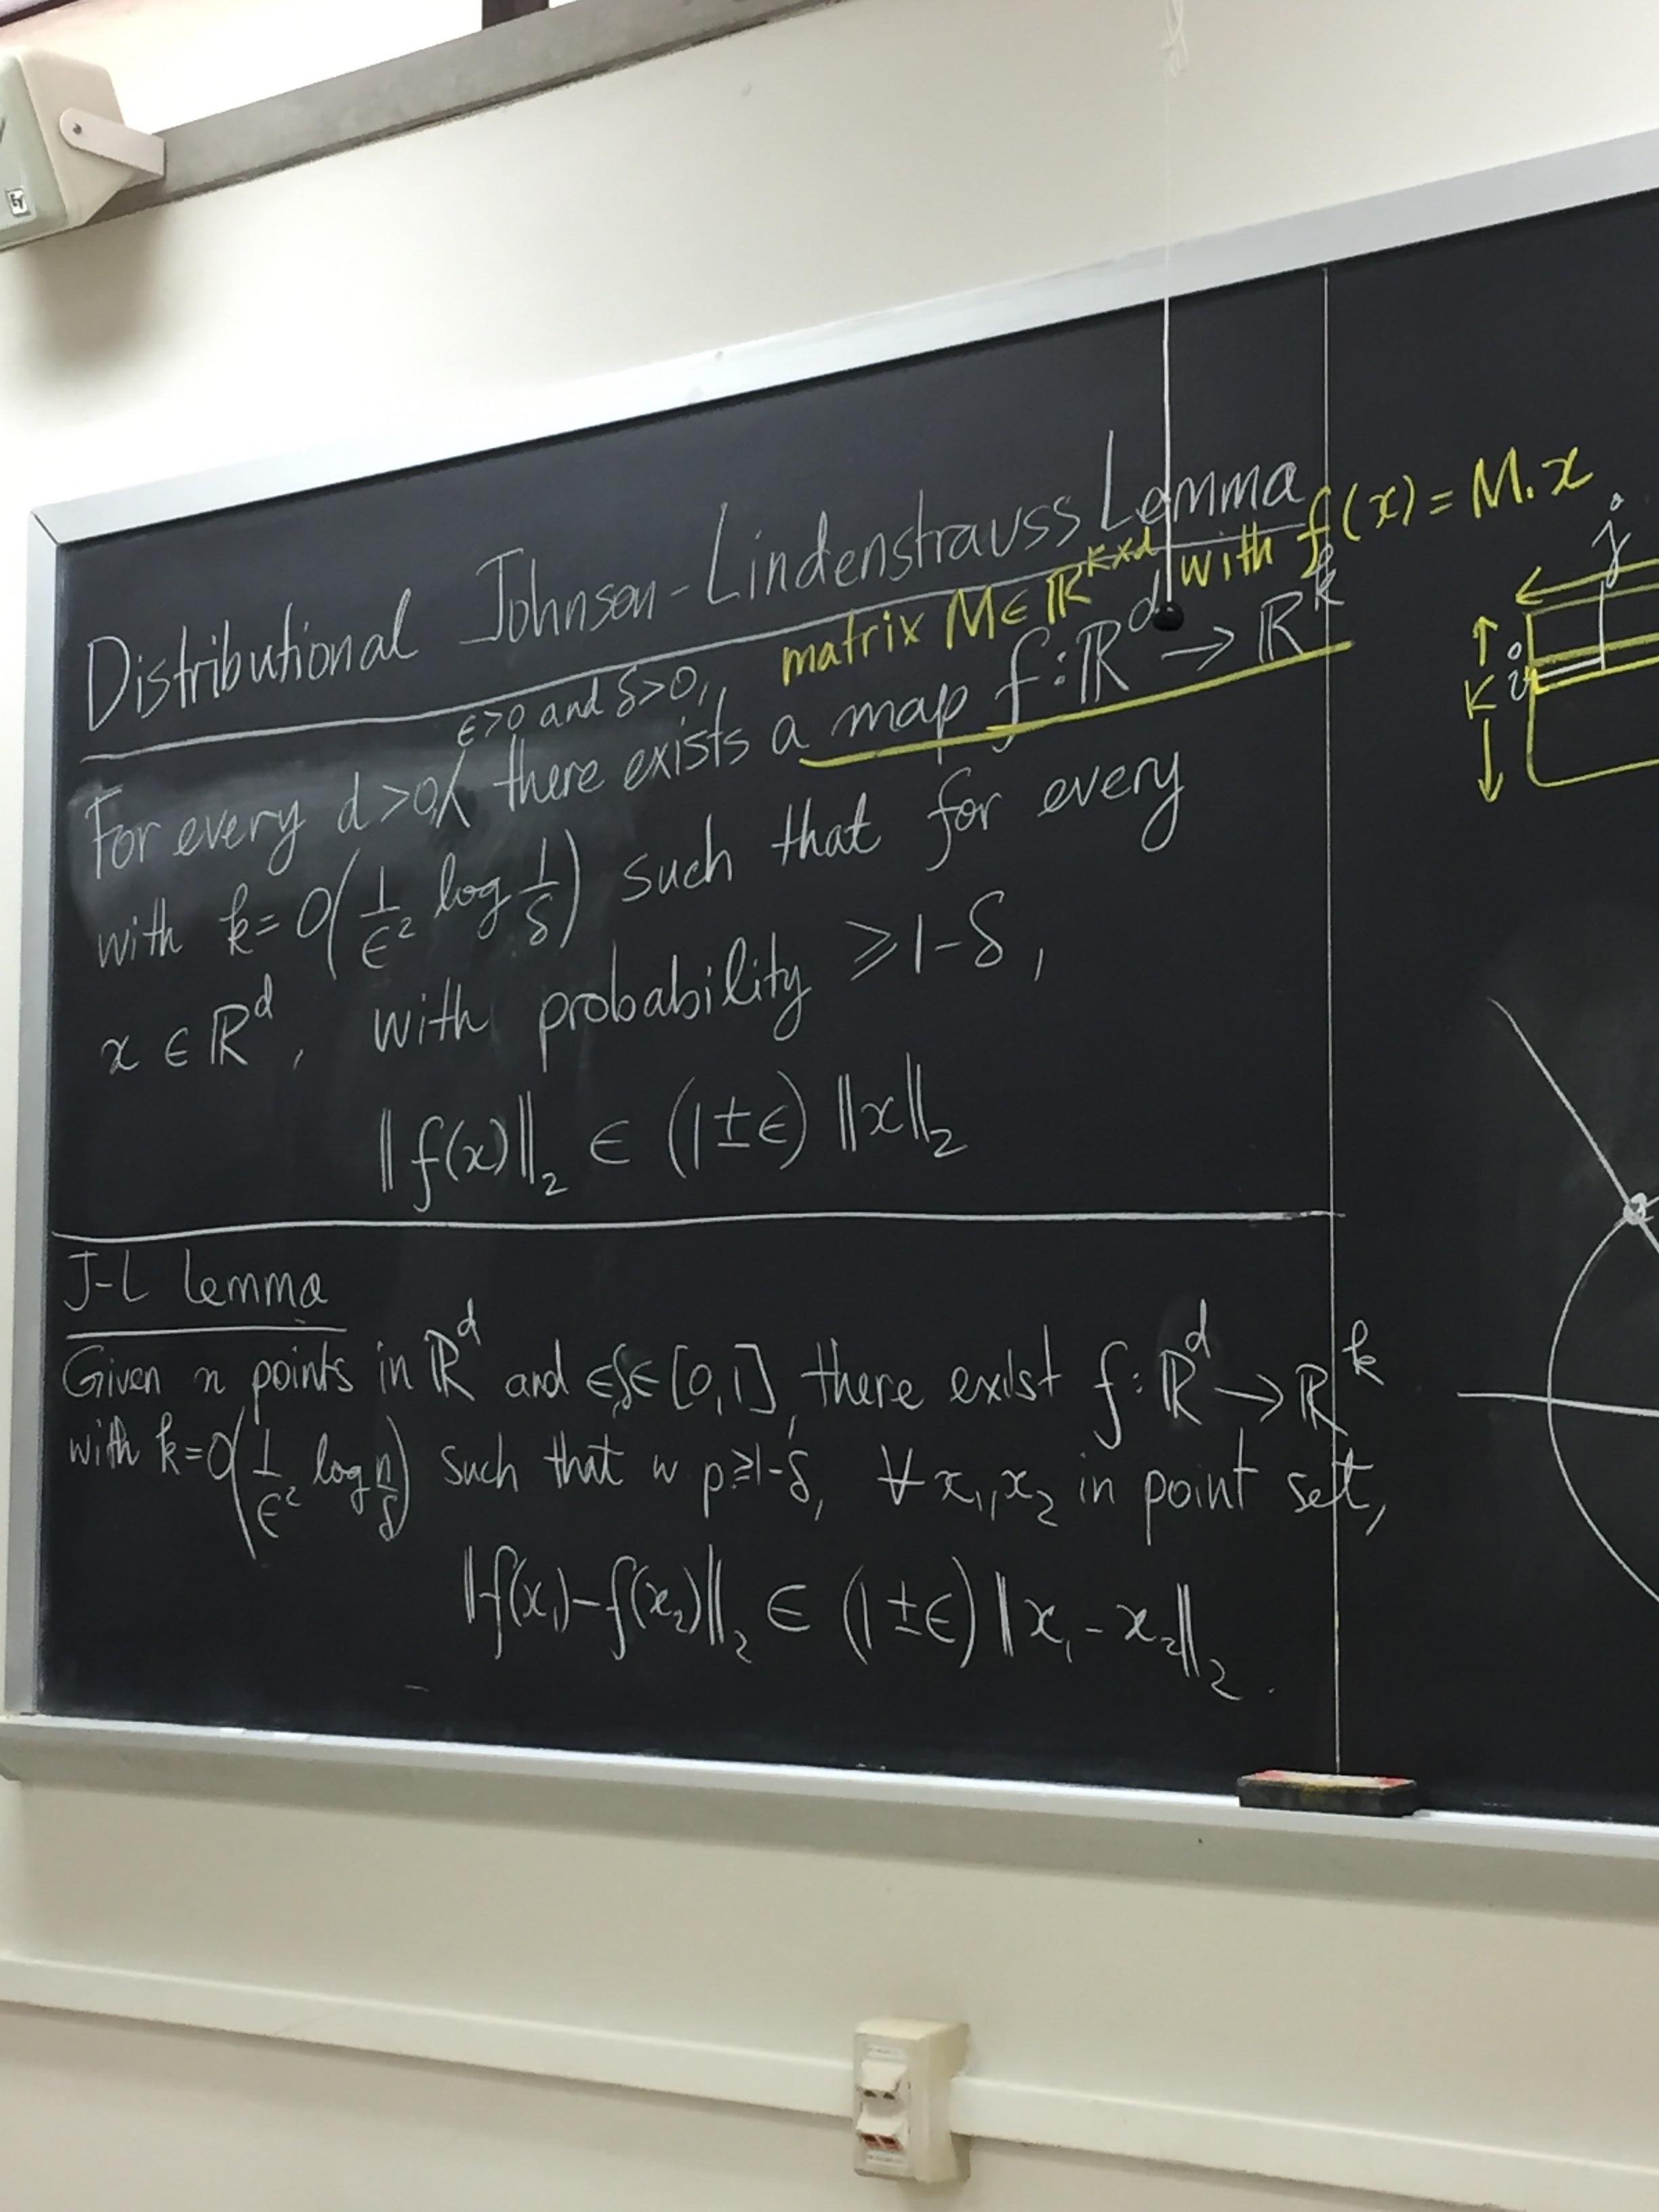 Distributional Johnson-Lindenstrauss Lemma
matrix M∈ℝ^{k×d} with f(x) = M.x
ϵ>0 and δ>0,
For every d>0, there exists a map f:ℝ^d → ℝ^k
with k=O(1/ϵ² log 1/δ) such that for every
x ∈ ℝ^d, with probability ≥1-δ,
‖f(x)‖₂ ∈ (1±ϵ) ‖x‖₂
J-L Lemma
Given n points in ℝ^d and ϵ,δ∈[0,1], there exist f:ℝ^d → ℝ^k
with k=O(1/ϵ² log n/δ) such that w p≥1-δ, ∀ x₁,x₂ in point set,
‖f(x₁)-f(x₂)‖₂ ∈ (1±ϵ) ‖x₁-x₂‖₂.
j
i
K
EV